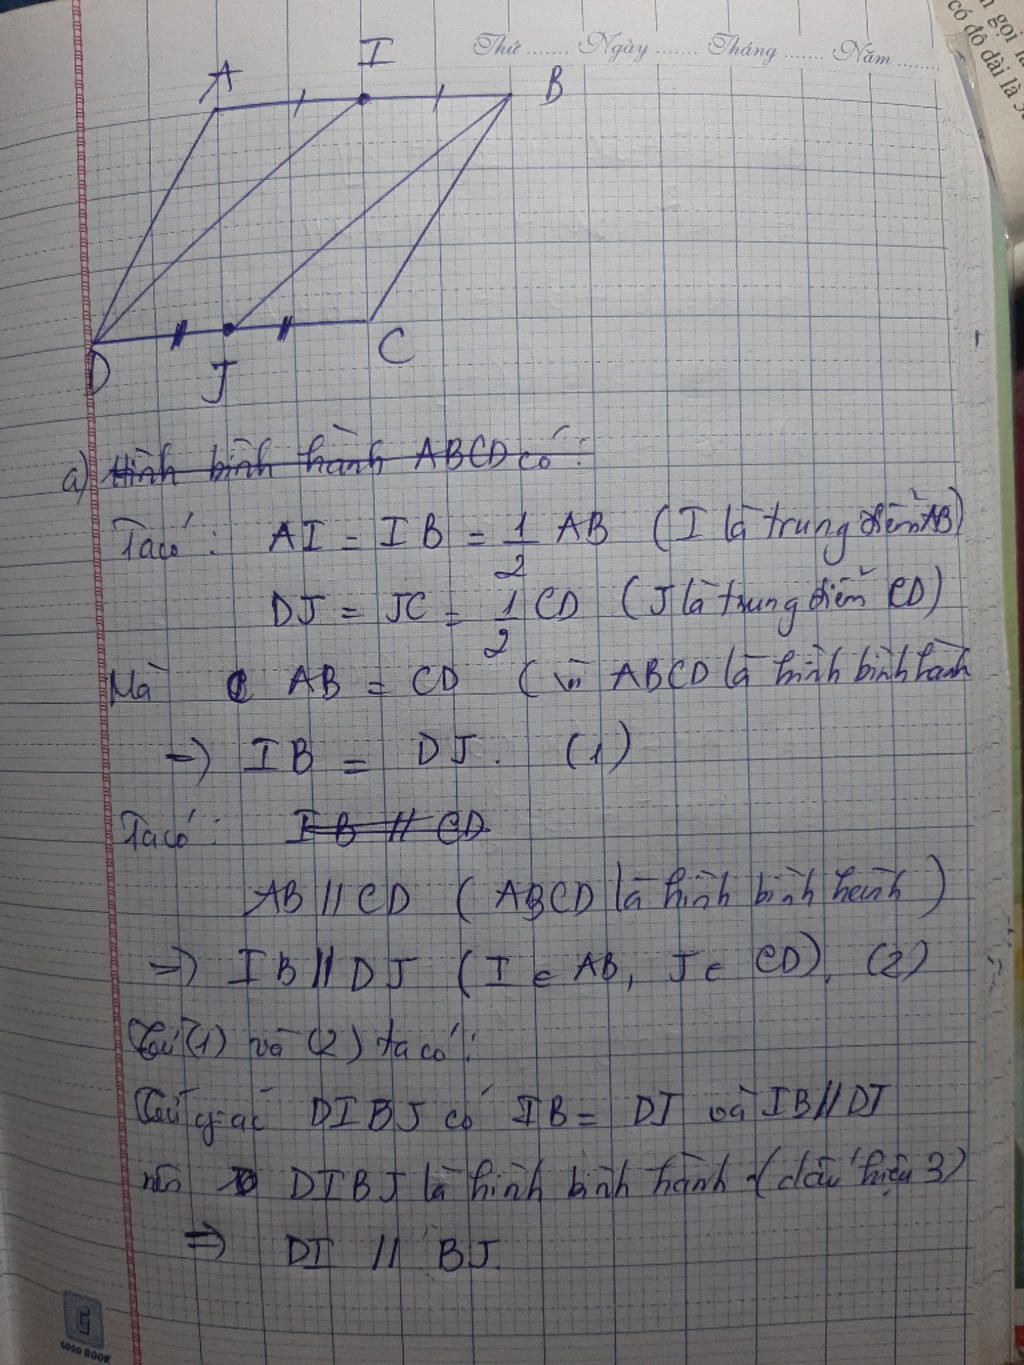 Thứ ........ Ngày ........ Tháng ........ Năm ........
gọi
có độ dài là
A I B
D J C
a) Hình bình hành ABCD có:
Ta có: AI = IB = 1/2 AB (I là trung điểm AB)
DJ = JC = 1/2 CD (J là trung điểm CD)
Mà AB = CD (vì ABCD là hình bình hành
=> IB = DJ. (1)
Ta có: IB // CD
AB // CD (ABCD là hình bình hành)
=> IB // DJ (I ∈ AB, J ∈ CD). (2)
Từ (1) và (2) ta có:
Tứ giác DIBJ có IB = DJ và IB // DJ
nên DIBJ là hình bình hành (dấu hiệu 3)
=> DI // BJ.
GOOD BOOK